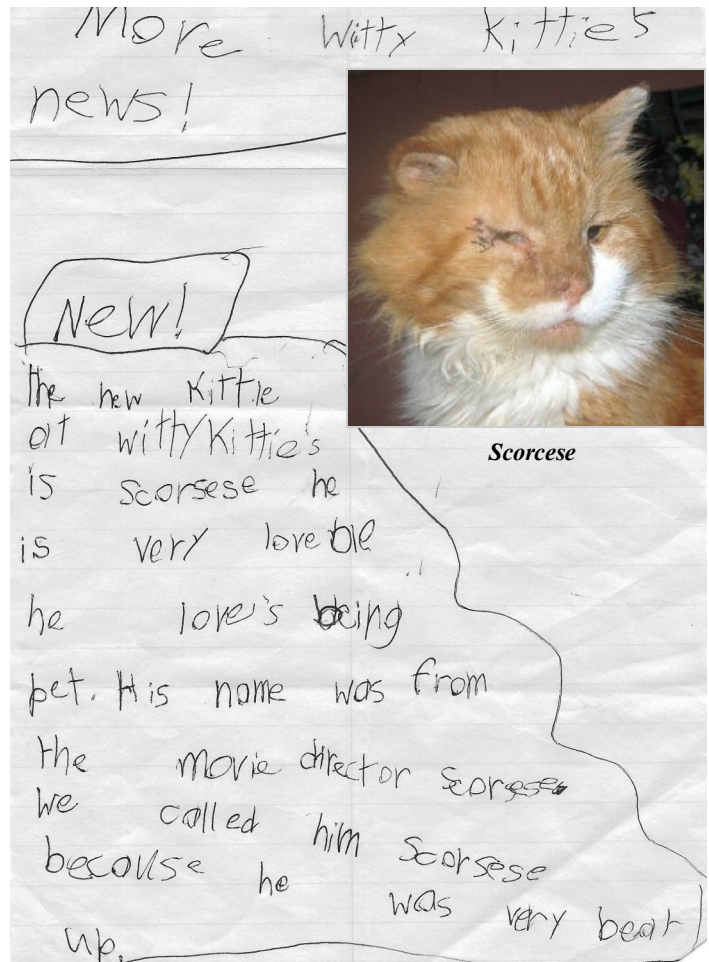 More Witty Kittie's
news!
New!
the new Kittie
at wittyKittie's
is Scorsese he
is very loveble
he love's being
pet. His name was from
the movie director Scorsese
we called him Scorsese
because he was very beat
up.
Scorcese